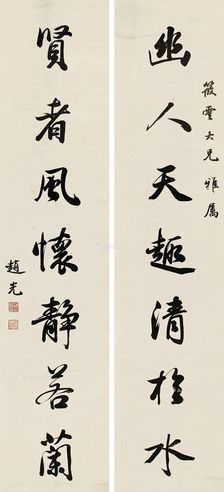 筱雲大兄雅屬
幽人天趣清於水
賢者風懷靜若蘭
趙光